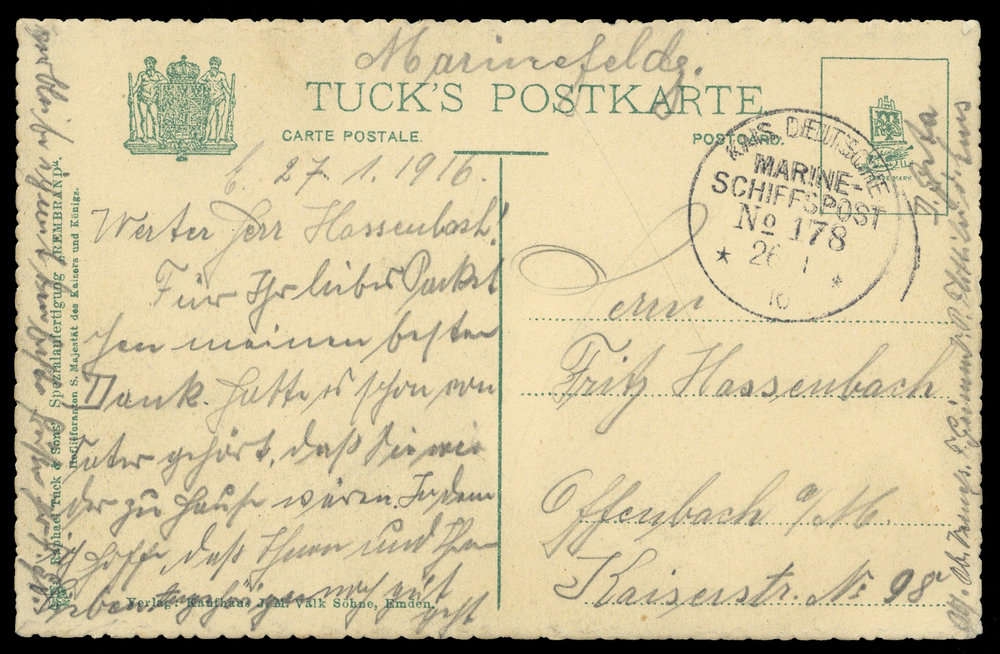 Marinefeldg.
TUCK'S POSTKARTE
CARTE POSTALE.
POSTCARD.
KAIS. DEUTSCHE
MARINE-
SCHIFFSPOST
No 178
* 26 1 *
16
E. 27. 1. 1916.
Werter Herr Hassenbach!
Für Ihr liebes Packet
Ihen meinen besten
Dank. Hatte es schon von
Vater gehört, daß Sie wie
der zu Hause wären. Indem
ich hoffe, daß Ihnen und Ih
ren Angehörigen noch gut
geht
Herrn
Fritz Hassenbach
Offenbach a/M.
Kaiserstr. No 98
Raphael Tuck & Sons' Spezialanfertigung „REMBRAND".
Hoflieferanten S. Majestät des Kaisers und Königs.
Verlag: Kaufhaus J. M. Valk Söhne, Emden.